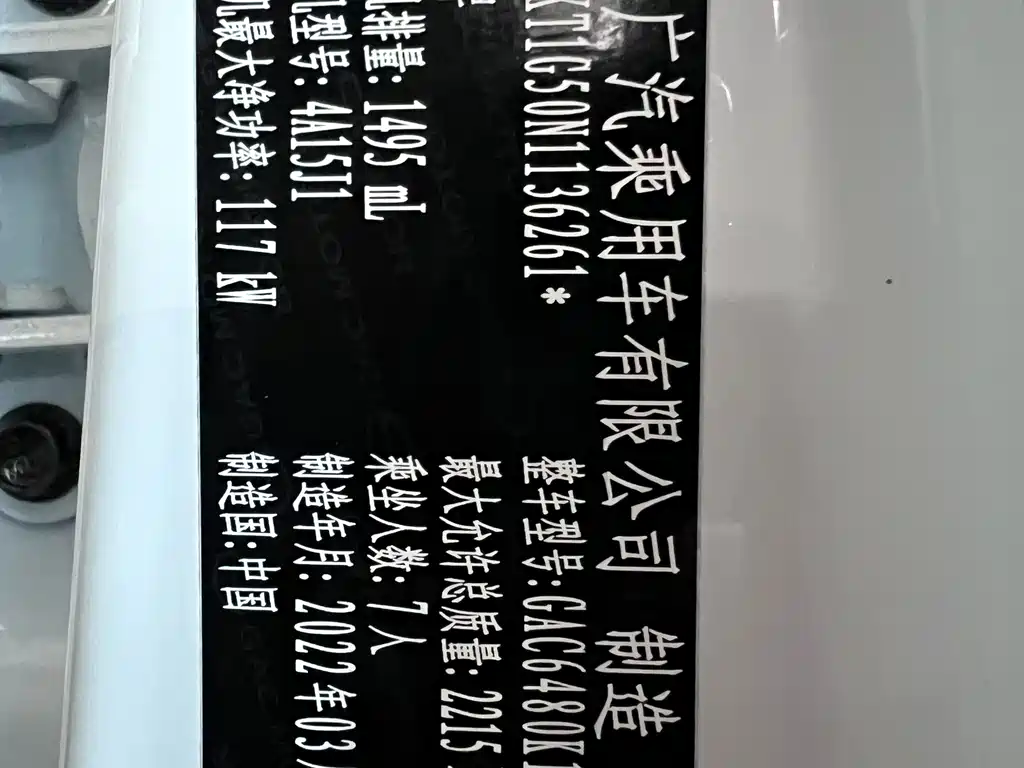 广汽乘用车有限公司 制造
KT1G50N1136261* 整车型号:GAC6480K1
最大允许总质量: 2215
机排量: 1495 mL 乘坐人数: 7人
机型号: 4A15J1 制造年月: 2022年03月
机最大净功率: 117 kW 制造国:中国